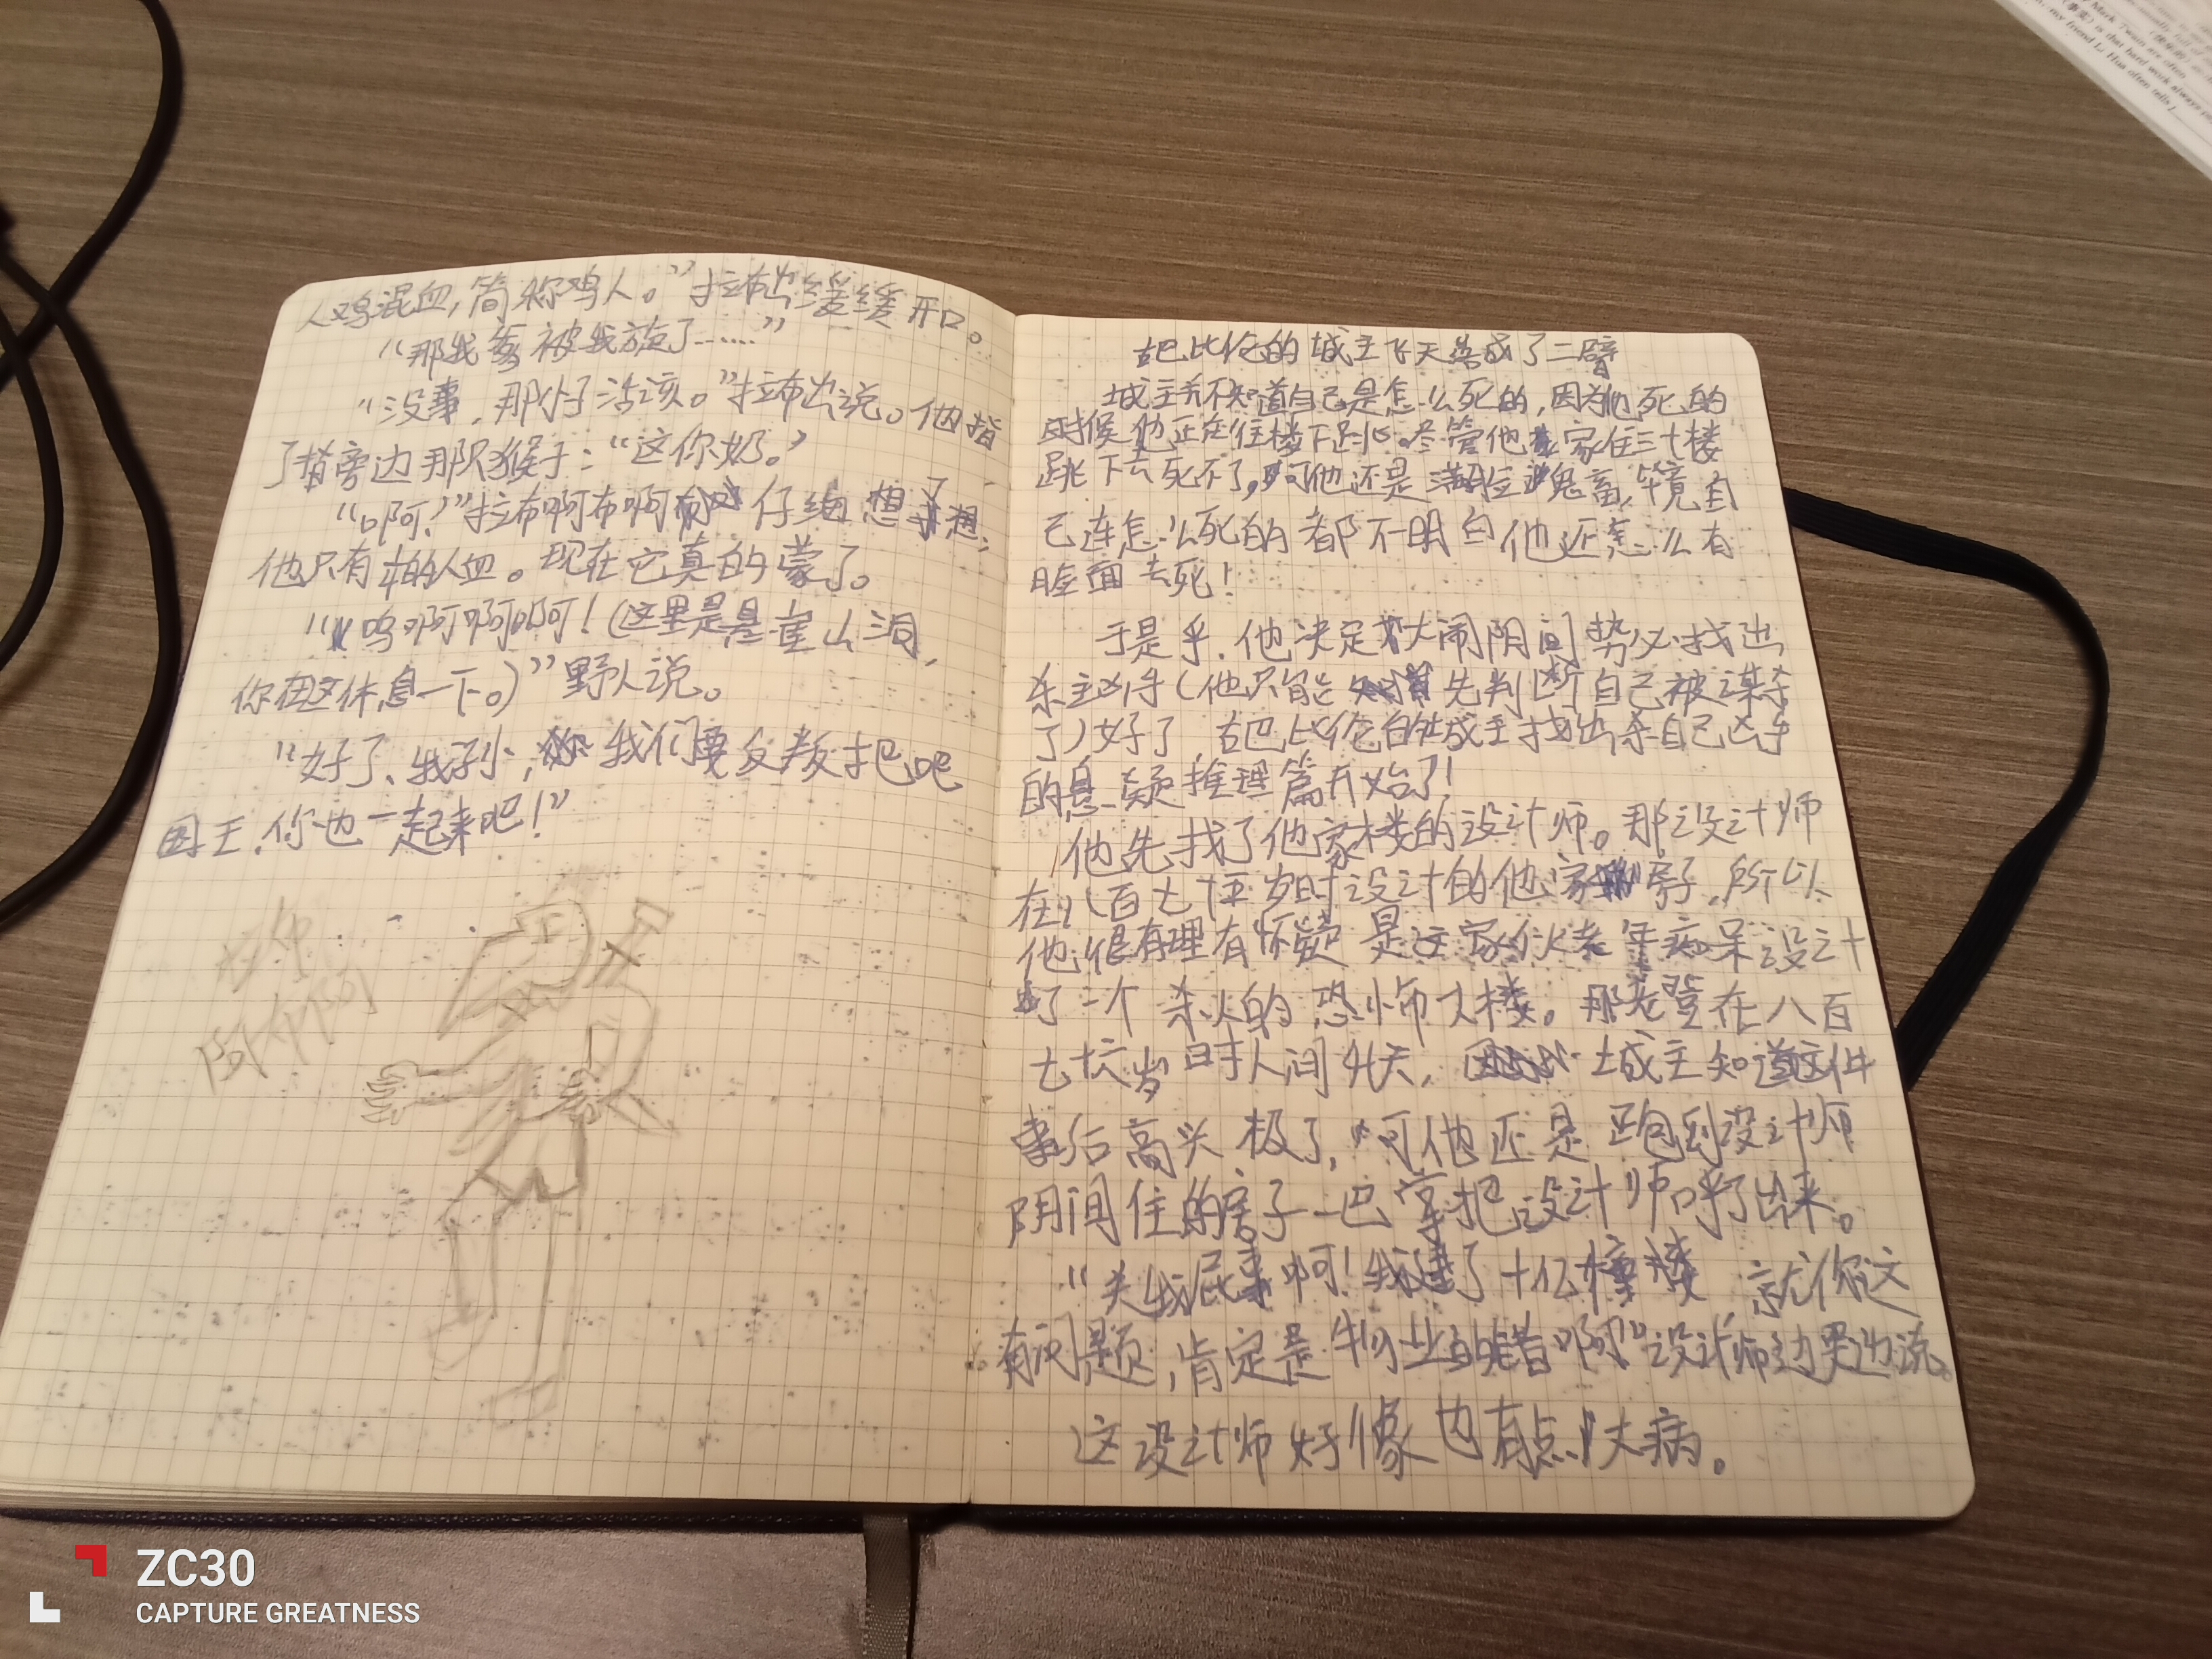 人鸡混血,简称鸡人。”拉布出缓缓开口。
“那我爹被我放了……”
“没事,那小子活该。”拉布出说。他指
了指旁边那只猴子:“这你奶。”
“啊?”拉布啊布啊仔细想了想,
他只有的人血。现在它真的蒙了。
“呜啊啊啊!(这里是崖山洞,
你在这休息一下。)”野人说。
“好了、我孙,我们要反叛把吧
国王.你也一起来吧!”
拉布
啊布啊
古巴比伦的城主飞天落成了二臂
城主并不知道自己是怎么死的,因为他死的
时候他正在往楼下跳。尽管他家住三十楼
跳下去死不了,可他还是满应鬼畜,毕竟自
己连怎么死的都不明白他还怎么有
脸面去死!
于是乎.他决定大闹阴间势必找出
杀主凶手(他只能先判断自己被谋杀
了)好了,古巴比伦的城主找出杀自己凶手
的悬疑推理篇开始了!
他先找了他家楼的设计师。那设计师
在八百七十五岁时设计的他家房子.所以
他很有理有怀疑是这家伙老年痴呆设计
了一个杀人的恐怖大楼。那老登在八百
七十六岁时人间升天,城主知道这件
事后高兴极了,可他还是跑到设计师
阴间住的房子一巴掌把设计师呼了出来。
“关我屁事啊!我建了十亿幢楼,就你这
有问题,肯定是物业的错啊”设计师边哭边说。
这设计师好像也有点大病。
ZC30
CAPTURE GREATNESS
Mark Twain are often
is that hard work always
my friend Li Hua often tells